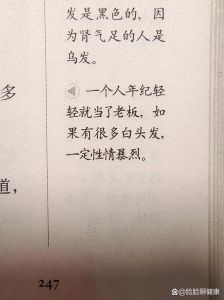 发是黑色的，因
为肾气足的人是
乌发。
一个人年纪轻
轻就当了老板，如
果有很多白头发，
一定性情暴烈。
多
道，
247
@脸脸聊健康